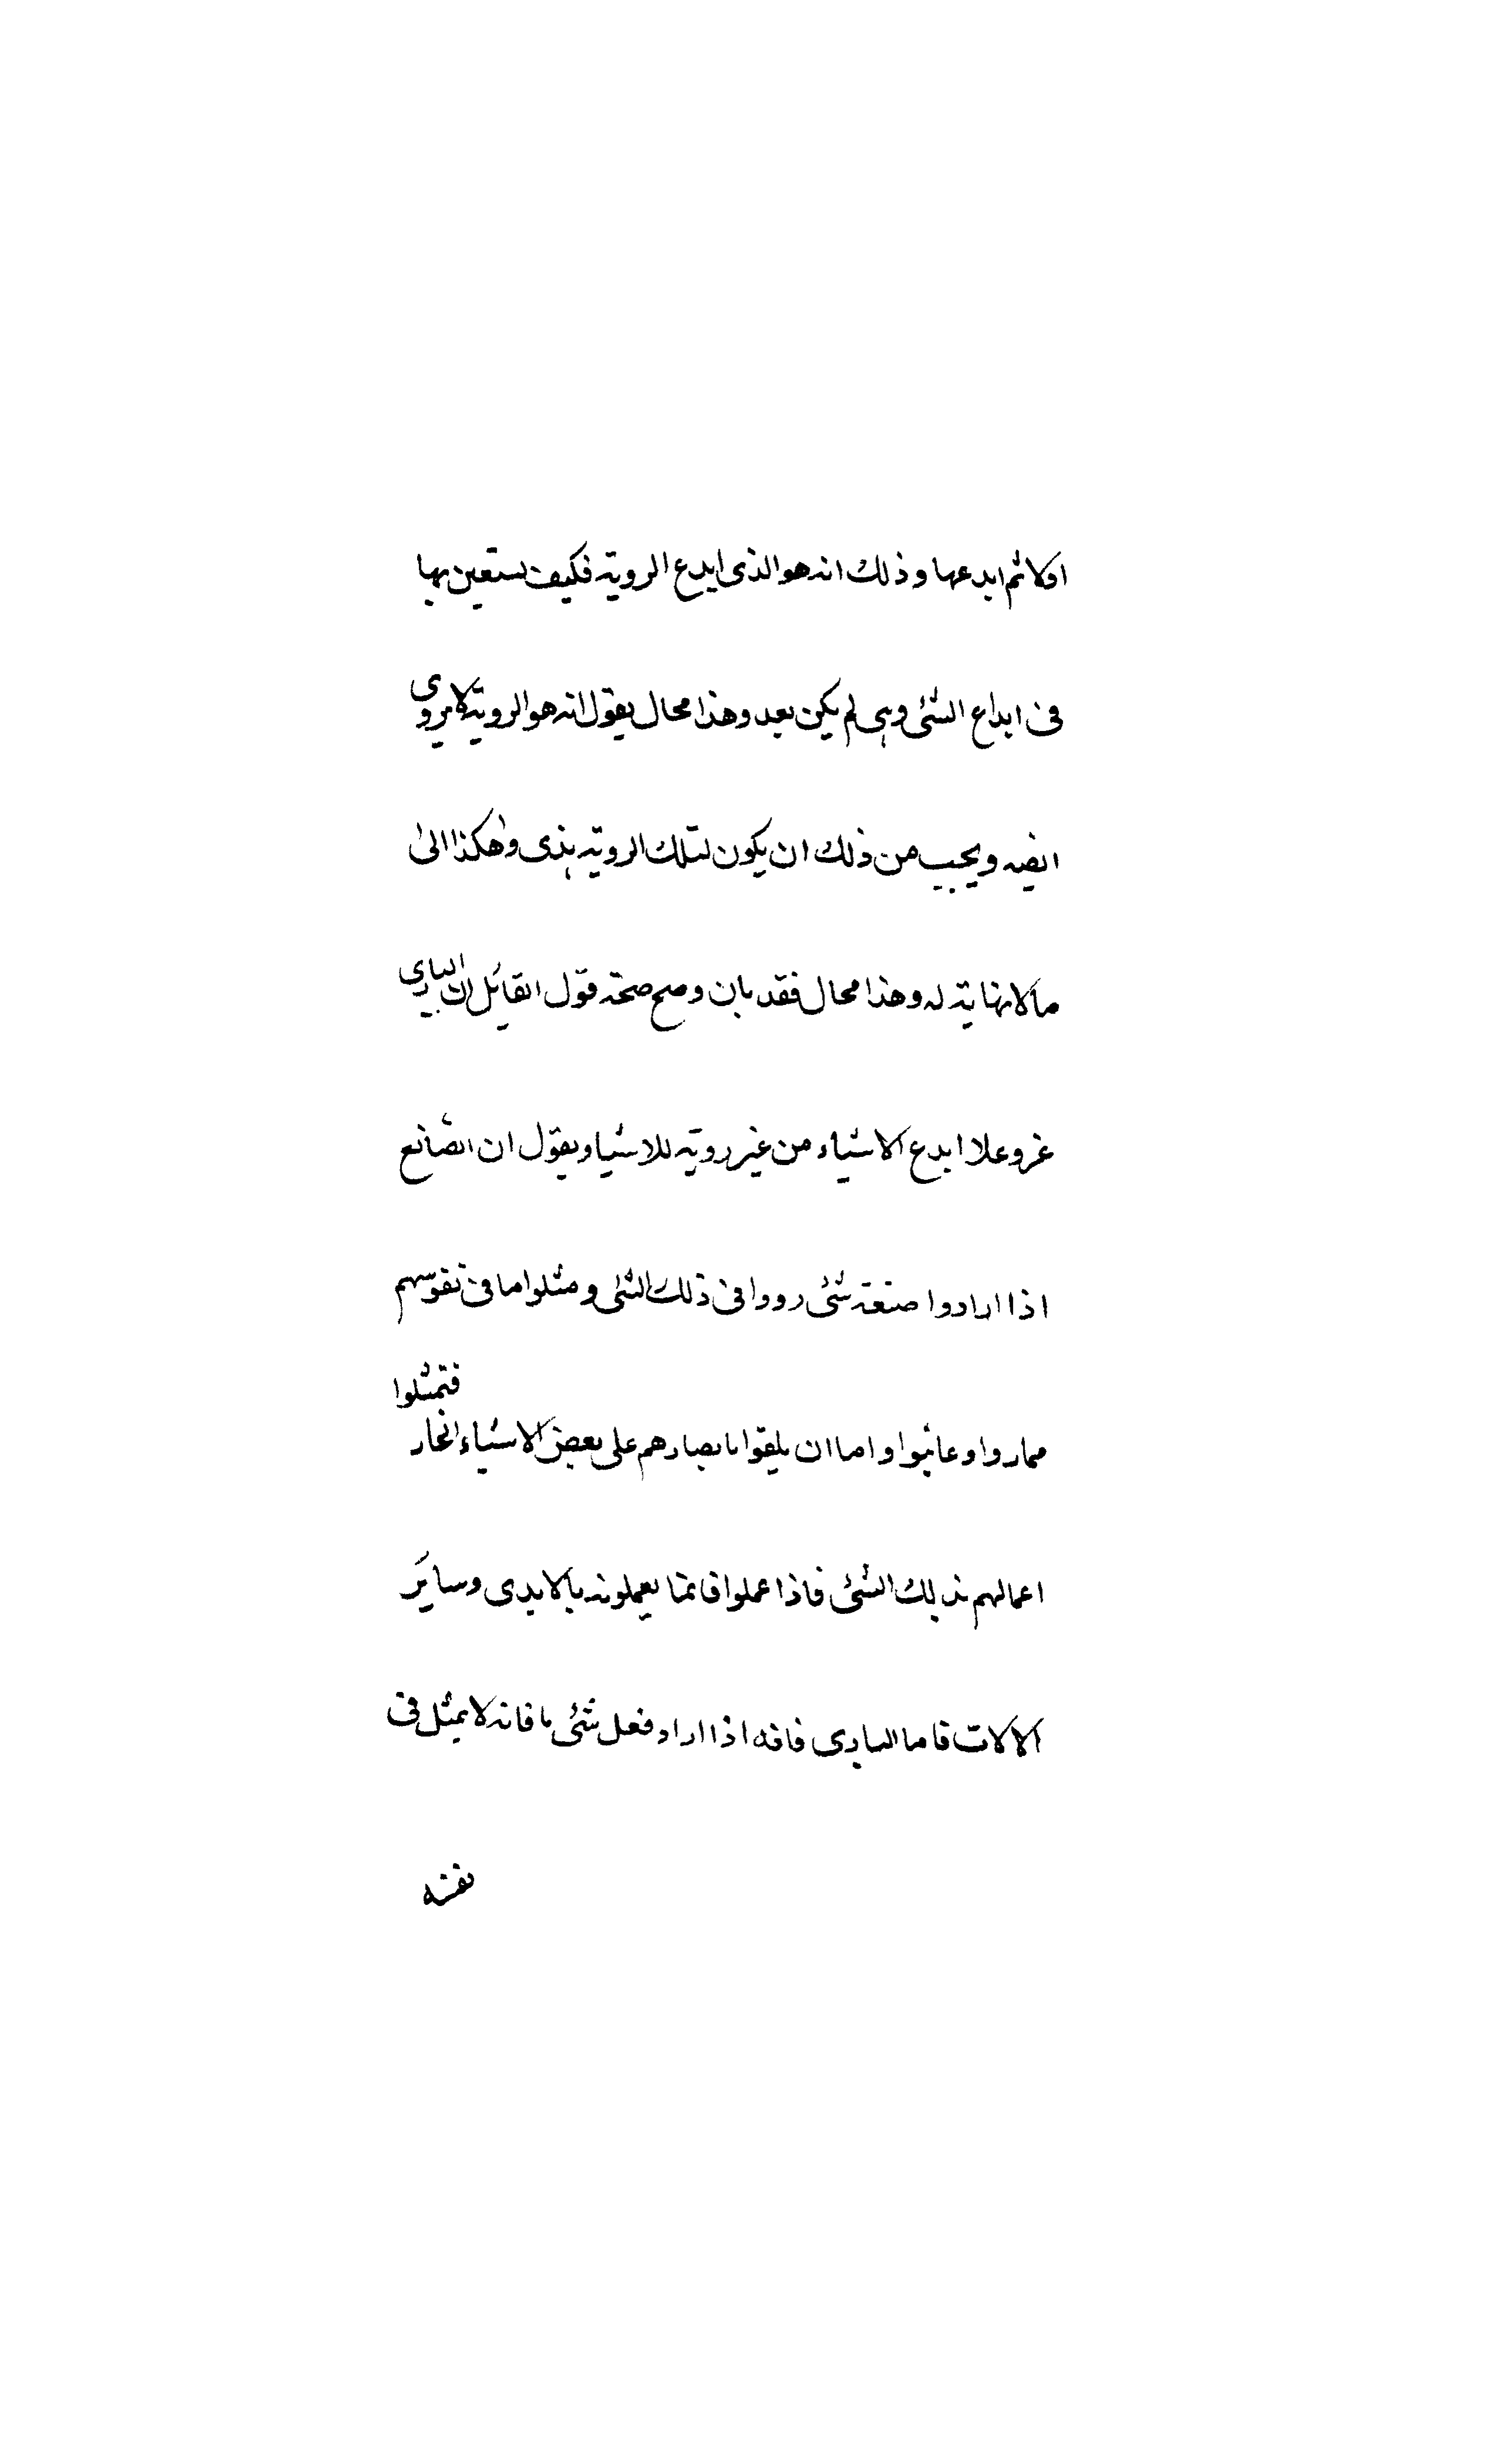 اولا ثم ابدعها وذلك انه هو الذى ابدع الروية فكيف يستعين بها
فى ابداع الشئ وهى لم يكن بعد وهذا محال يقول انه هو الروية لا يروى
ايضه ويجب من ذلك ان يكون لتلك الروية هذى وهكذا الى
مالا نهاية له وهذا محال فقد بان وصح صحة قول القائل ان البارى
عز وعلا ابدع الاشياء من غير روية للاشيا ويقول ان الصانع
اذا ارادوا صنعة شئ رووا فى ذلك الشئ ومثلوا ما فى نفوسهم
مما روا وعاينوا واما ان يلقوا بابصارهم على بعض الاشياء الخار فتمثلوا
اعمالهم بذلك الشئ فاذا عملوا فانما يعملونه بالايدى وساير
الالات فاما البارى فانه اذا اراد فعل شئ ما فانه لا يمثل فى
نفسه